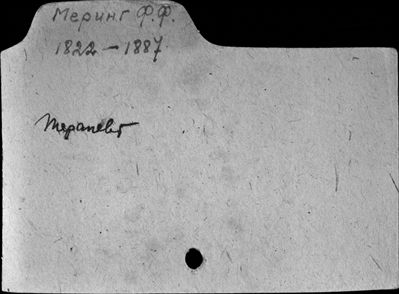 Меринг Ф.Ф.
1822 – 1887
терапевт